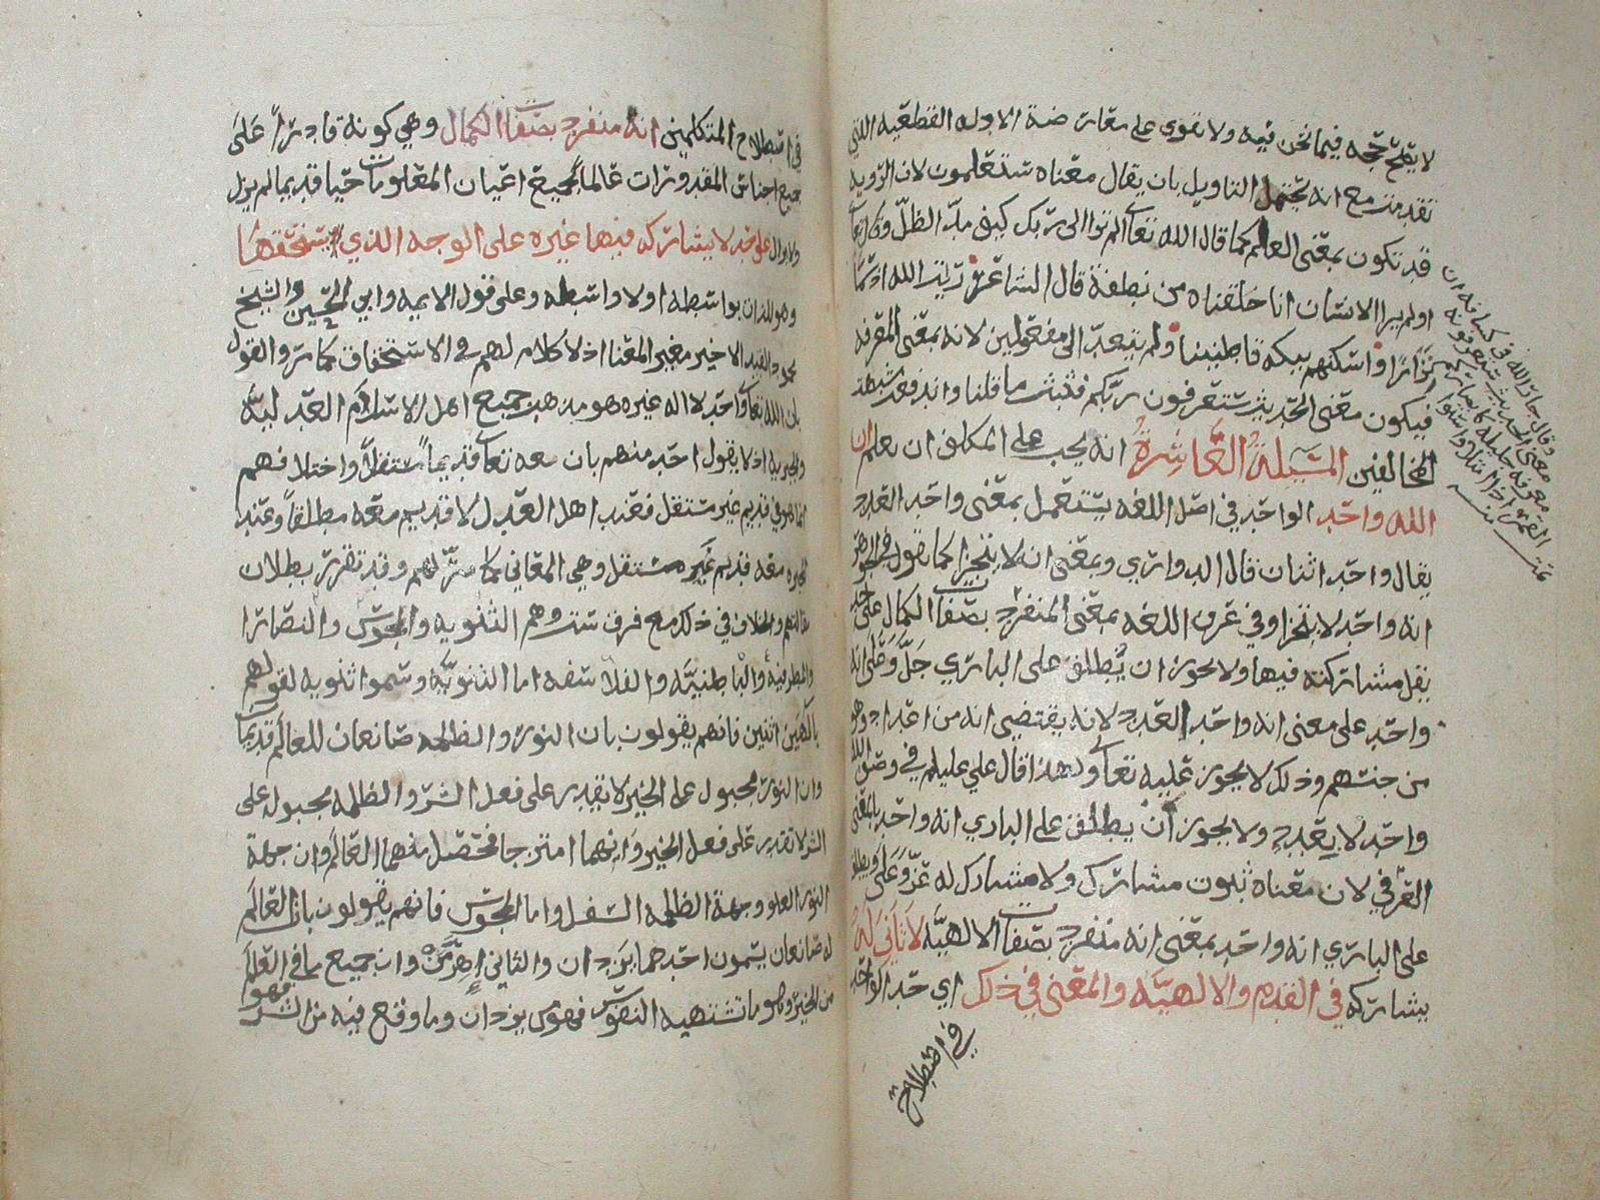 لا يصح فيما نحن فيه ولا تقوى على معارضة الادله القطعيه اللتي
تقدمت مع انه يحتمل التاويل بان يقال معناه ستعلمون لان الرويه
قد تكون بمعنى العلم كما قال الله تعالى الم تر الى ربك كيف مد الظل وقال تعالى
اولم ير الانسان انا خلقناه من نطفة قال الشاعر رايت الله اذ سما
نزارا واسكنهم ببكه قاطنينا ولم يتعد الى مفعولين لانه بمعنى المعرفه
فيكون معنى الحديث ستعرفون ربكم فثبت ما قلنا واندفعت شبهة
المخالفين المسيلة العاشرة انه يجب على المكلف ان يعلم ان
الله واحد الواحد في اصل اللغه يستعمل بمعنى واحد العدد
يقال واحد اثنان قال الدواري وبمعنى انه لا يتجزا كما تقول في الجوهر
انه واحد لا يتجزا وفي عرف اللغه بمعنى المنفرد بصفات الكمال على حد
يقل مشاركته فيها ولا يجوز ان يطلق على الباري جل وعلى انه
واحد على معنى انه واحد العدد لانه يقتضي انه من اعداد وهو
من جنسهم وذلك لا يجوز عليه تعالى ولهذا قال علي عليلم في وصف الله
واحد لا بعدد ولا يجوز ان يطلق على الباري انه واحد بالمعنى
العرفي لان معناه ثبوت مشارك ولا مشارك له عز وعلى ويطلق
على الباري انه واحد بمعنى انه منفرد بصفات الالهيه لا ثاني له
يشاركه في القدم والالهيه والمعنى في ذلك اي حد الواحد
في اصطلاح
في اصطلاح المتكلمين انه منفرد بصفات الكمال وهي كونه قادرا على
جميع اجناس المقدورات عالما بجميع اعيان المعلومات حيا قديما لم يزل
ولا يزال على حد لا يشاركه فيها غيره على الوجه الذي يستحقها
وهو للذات بواسطه اولا واسطه وعلى قول الايمه وابي الحسين والشيخ
محمود القيد الاخير مغير المعنا اذ لا كلام لهم في الاستحقاق كما مر والقول
بان الله تعالى واحد لا اله غيره هو مذهب جميع اهل الاسلام العدليه
والجبريه اذ لا يقول احد منهم بان معه تعالى قديما مستقلا واختلافهم
انما هو في قديم غير مستقل فعند اهل العدل لا قديم معه مطلقا وعند
المجبره معه قديم غير مستقل وهي المعاني كما مر لهم وقد تقرر بطلان
مقالتهم والخلاف في ذلك مع فرق ست وهم الثنويه والمجوس والنصارا
والمطرفيه والباطنيه والفلاسفه اما الثنويه وسموا ثنويه لقولهم
بالهين اثنين فانهم يقولون بان النور والظلمه صانعان للعالم قديمان
وان النور مجبول على الخير لا يقدر على فعل الشر والظلمه مجبوله على
الشر لا تقدر على فعل الخير وانهما امتزجا فحصل منهما العالم وان جهة
النور العلو وجهة الظلمه السفل واما المجوس فانهم يقولون بان العالم
له صانعان يسمون احدهما يزدان والثاني اهرمن وان جميع ما في العالم
من الخير وهو ما تشتهيه النفوس فهو من يزدان وما وقع فيه من الشر
فهو